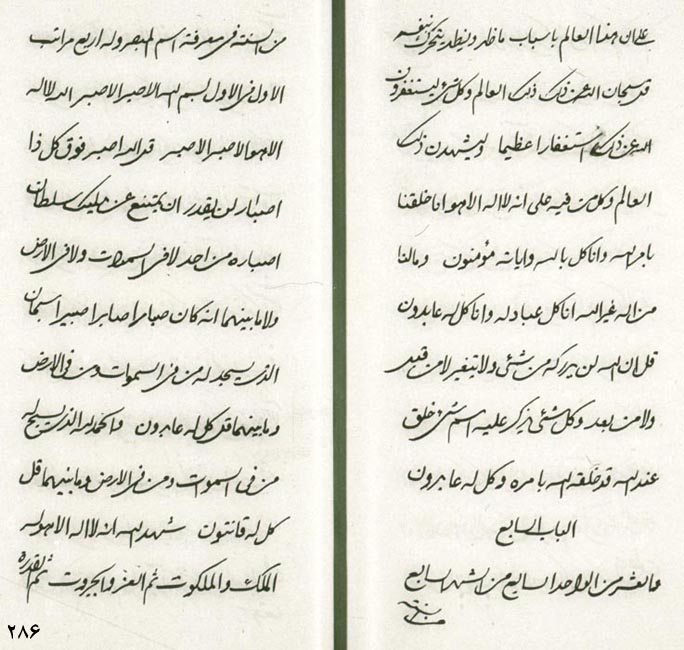 علمان هذا العالم باسباب ما خلد ونظد يتحرك بنفسه
قد سبحان الله عن ذلك ذلك العالم وكل شئ وليستغفرون
الله عن ذلك استغفارا عظيما وليشهدن ذلك
العالم وكل من فيه على انه لا اله الا هو انا خلقنا
بامر الله وانا كل بالله وآياته مؤمنون وما لنا
من اله غير الله انا كل عباد له وانا كل له عابدون
قل ان الله لن يدركه من شئ ولا يتغير لا من قبل
ولا من بعد وكل شئ يذكر عليه اسم شئ خلق
عند الله قد خلقه الله بامره وكل له عابدون
الباب السابع
والعشر من الواحد السابع من الشهر السابع
من السنة فى معرفة اسم المصبر وله اربع مراتب
الاول فى الاول بسم الله الاصبر الاصبر الله لا اله
الا هو الاصبر الاصبر قل الله اصبر فوق كل ذا
اصبار لن يقدر ان يمتنع عن مليك سلطان
اصباره من احد لا فى السموات ولا فى الارض
ولا ما بينهما انه كان صبارا صابرا صبيرا سبحان
الذى يسجد له من فى السموات ومن فى الارض
وما بينهما قل كل له عابدون والحمد لله الذى يسبح له
من فى السموات ومن فى الارض وما بينهما قل
كل له قانتون شهد الله انه لا اله الا هو له
الملك والملكوت ثم العز والجبروت ثم القدرة
٢٨۶